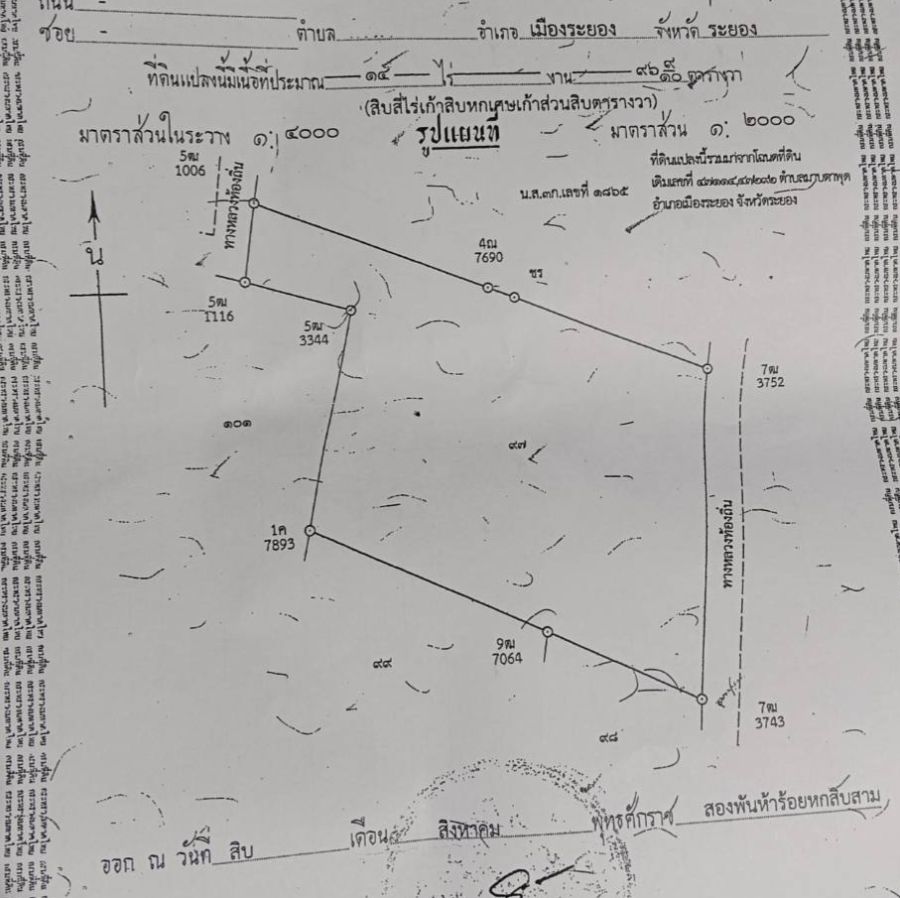 ถนน -
ซอย - ตำบล อำเภอ เมืองระยอง จังหวัด ระยอง
ที่ดินแปลงนี้มีเนื้อที่ประมาณ ๑๔ ไร่ - งาน ๙๖ ๙/๑๐ ตารางวา
(สิบสี่ไร่เก้าสิบหกเศษเก้าส่วนสิบตารางวา)
มาตราส่วนในระวาง ๑: ๔๐๐๐ รูปแผนที่ มาตราส่วน ๑: ๒๐๐๐
ที่ดินแปลงนี้รวมมาจากโฉนดที่ดิน
น.ส.๓ก.เลขที่ ๑๘๖๕
เดิมเลขที่ ตำบลมาบตาพุด
อำเภอเมืองระยอง จังหวัดระยอง
5ฒ
1006
ทางหลวงท้องถิ่น
น
4ณ
7690
ชร
5ฒ
1116
5ฒ
3344
7ฒ
3752
๑๐๑
๙๗
1ค
7893
ทางหลวงท้องถิ่น
9ฒ
7064
๙๙
7ฒ
3743
๙๘
ออก ณ วันที่ สิบ เดือน สิงหาคม พุทธศักราช สองพันห้าร้อยหกสิบสาม